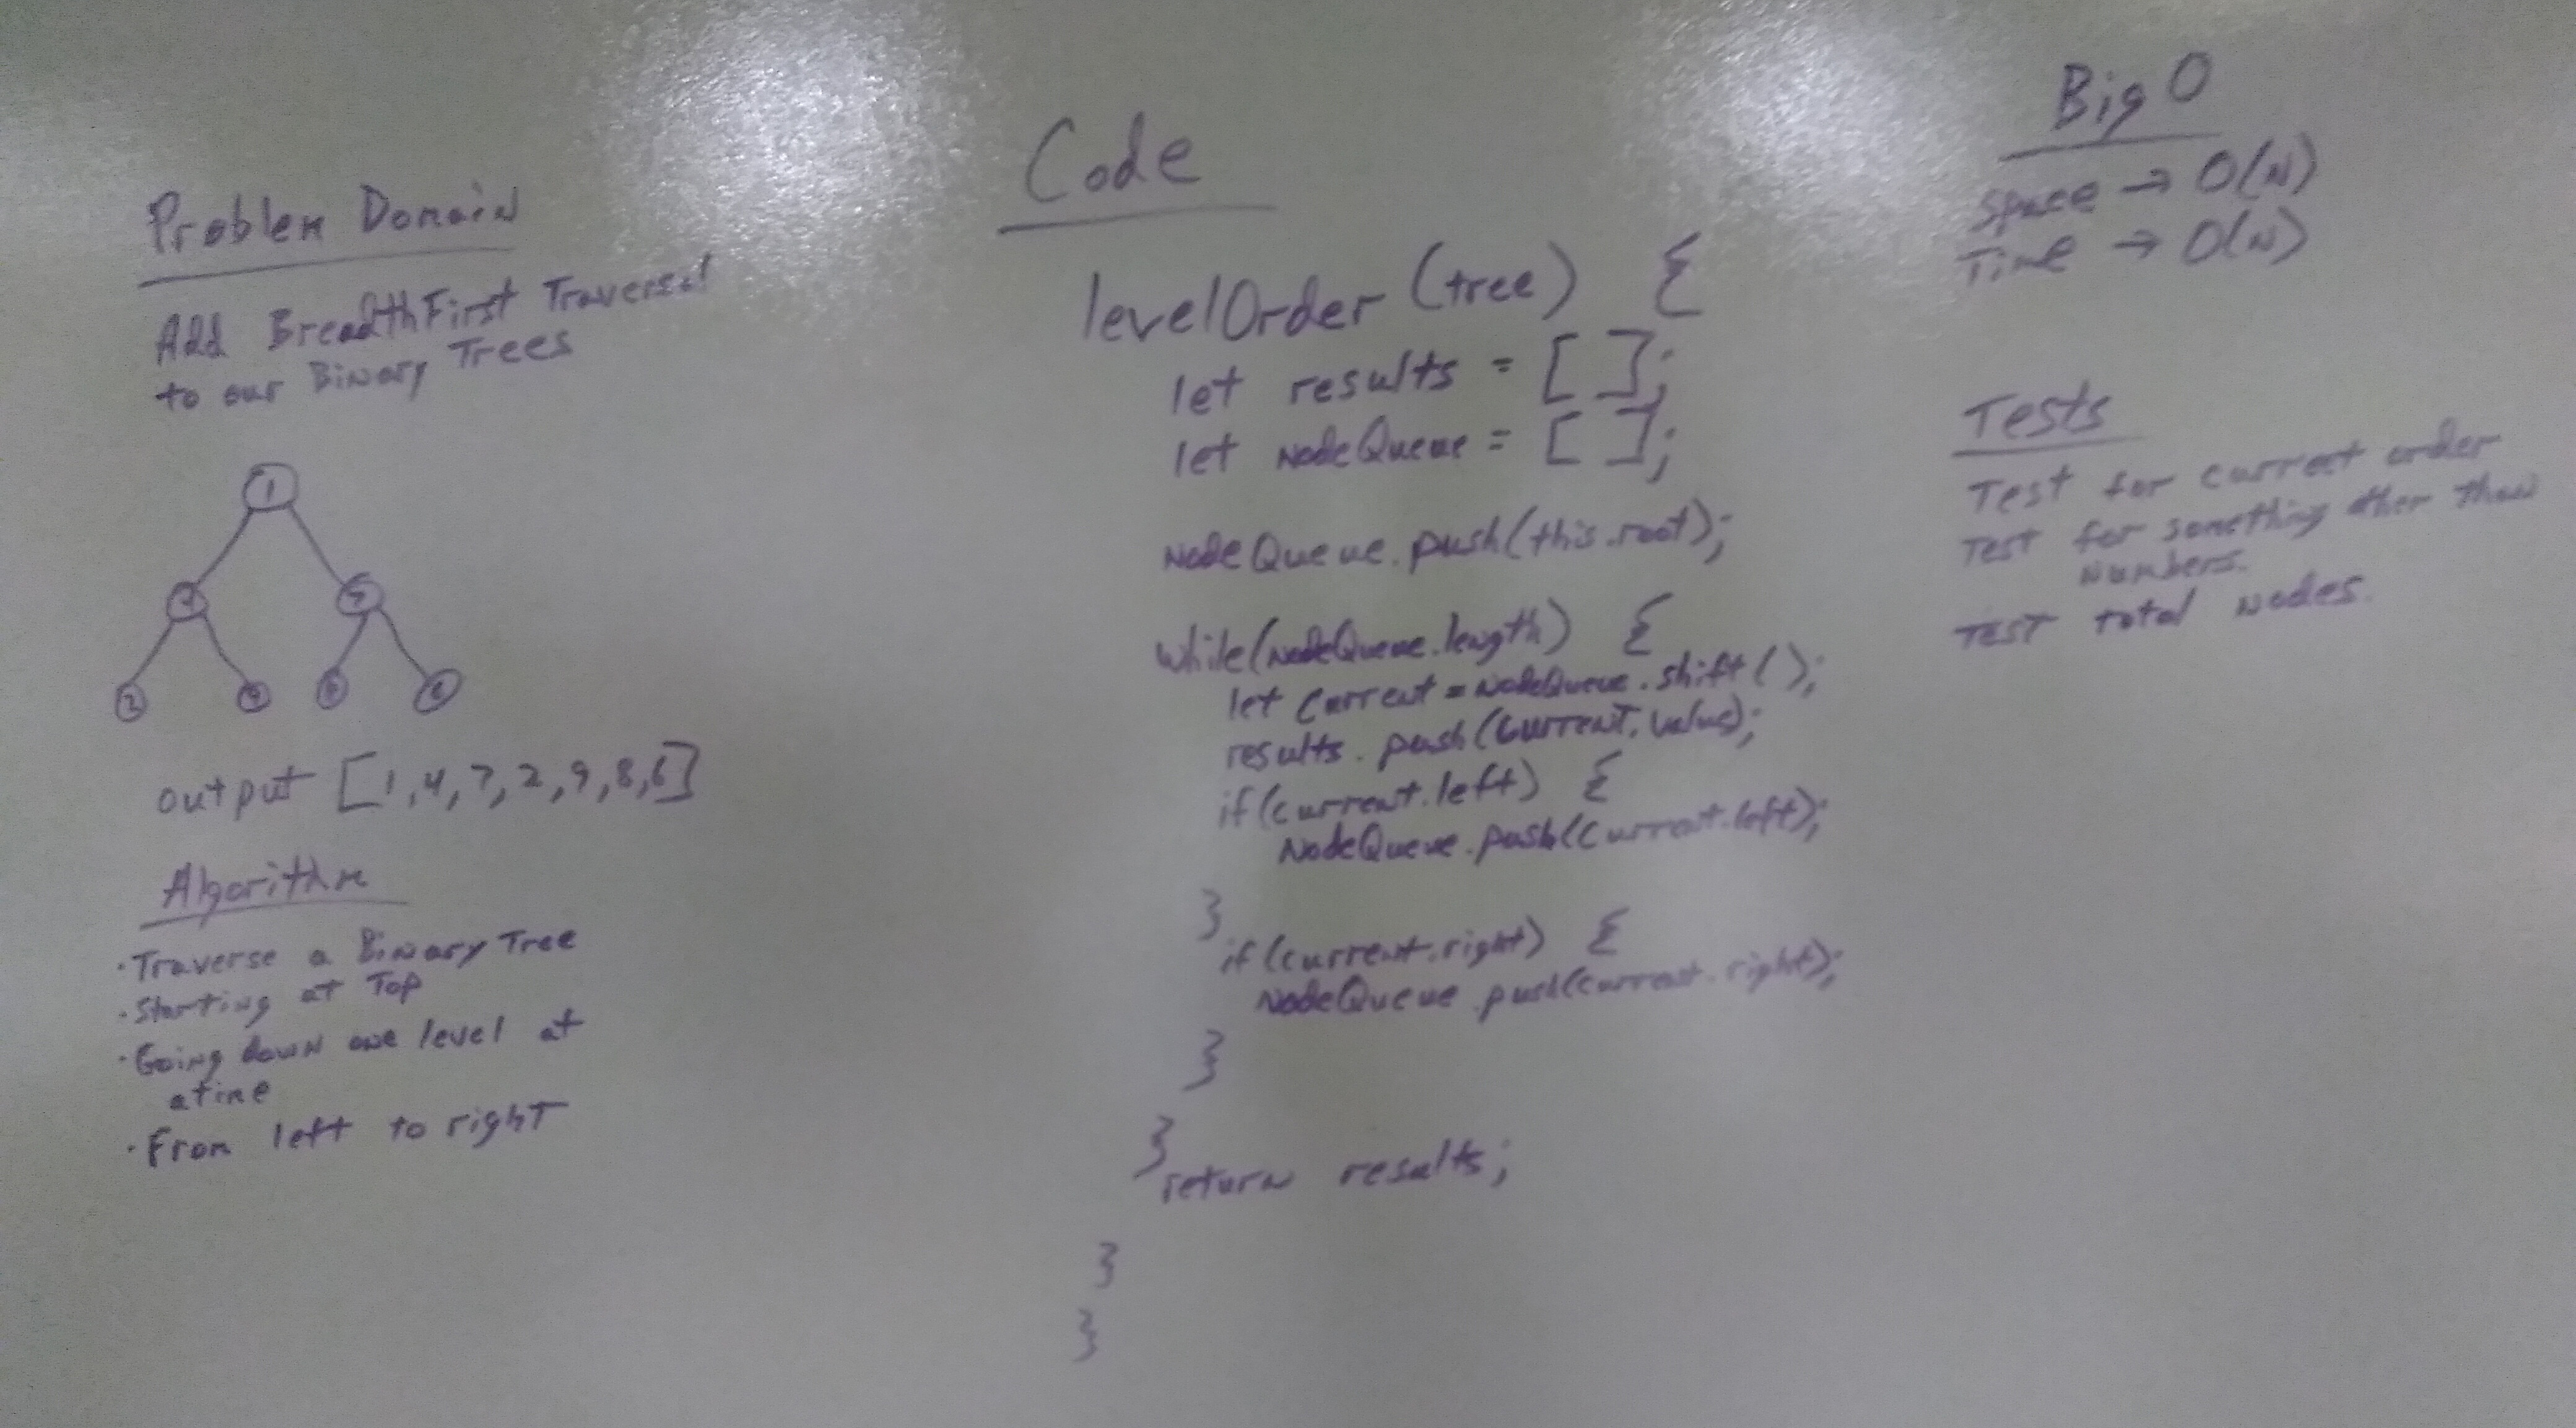 Problem Domain
Add BreadthFirst Traversal
to our Binary Trees
1
4
7
2
9
8
6
output [1,4,7,2,9,8,6]
Algorithm
·Traverse a Binary Tree
·Starting at Top
·Going down one level at
a time
·From left to right
Code
levelOrder (tree) {
let results = [ ];
let nodeQueue = [ ];
nodeQueue.push(this.root);
while(nodeQueue.length) {
let current = nodeQueue.shift( );
results.push(current.value);
if(current.left) {
nodeQueue.push(current.left);
}
if(current.right) {
nodeQueue.push(current.right);
}
}
return results;
}
}
Big O
Space → O(N)
Time → O(N)
Tests
Test for current order
Test for something other than
numbers.
Test total nodes.